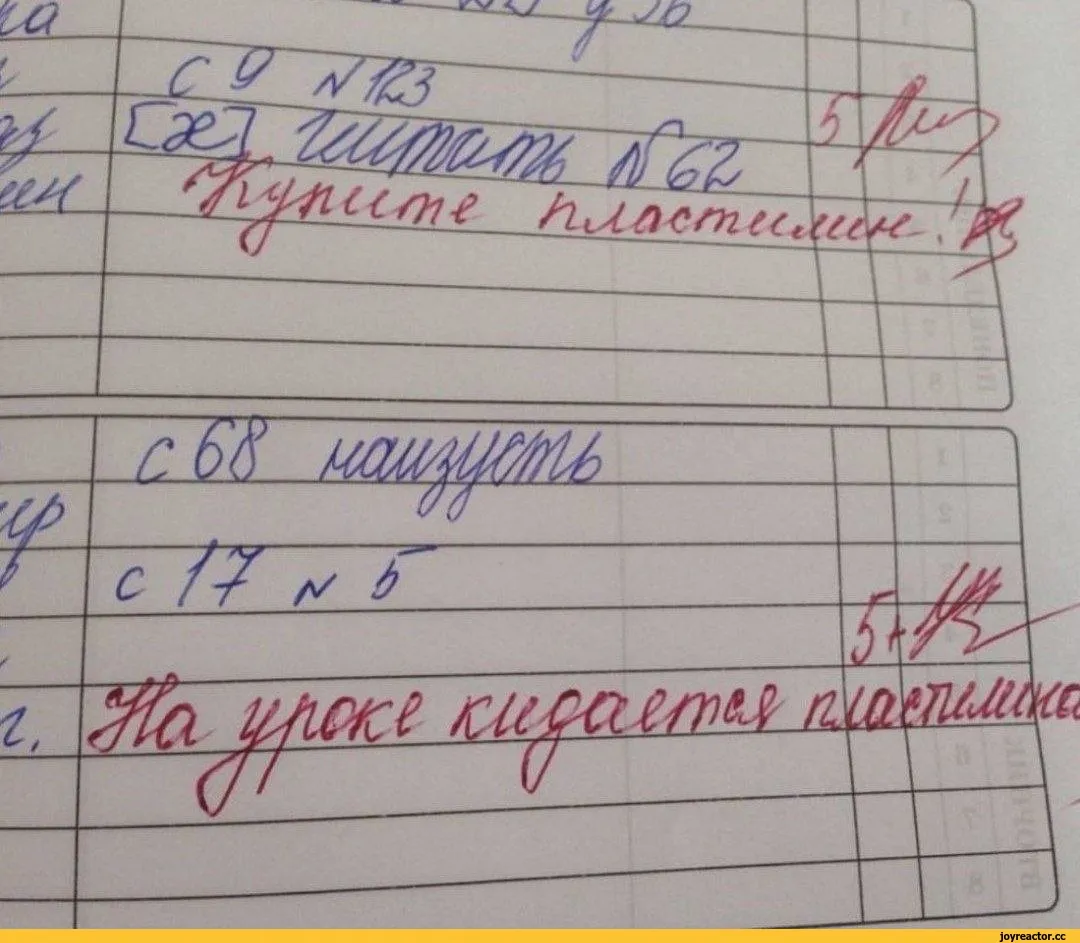 ка
с 9 N 123
[ж] читать N 62
5
ин Купите пластилин!
с 68 наизусть
ир
с 17 N 5
5+
г. На уроке кидается пластилина
joyreactor.cc